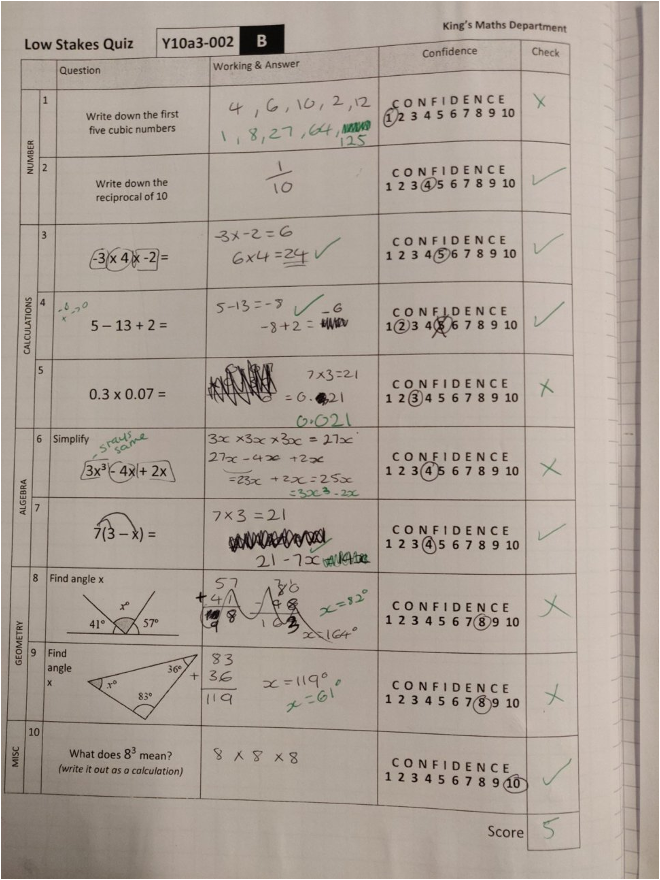 King's Maths Department
Low Stakes Quiz Y10a3-002 B
Question Working & Answer Confidence Check
NUMBER
1
Write down the first
five cubic numbers
4, 6, 10, 2, 12
1, 8, 27, 64,
125
CONFIDENCE
1 2 3 4 5 6 7 8 9 10
✗
2
Write down the
reciprocal of 10
1
10
CONFIDENCE
1 2 3 4 5 6 7 8 9 10
✓
CALCULATIONS
3
-3 x 4 x -2 =
-3 x -2 = 6
6 x 4 = 24 ✓
CONFIDENCE
1 2 3 4 5 6 7 8 9 10
✓
4
5 – 13 + 2 =
5-13 = -8 ✓
-8+2 = -6
CONFIDENCE
1 2 3 4 5 6 7 8 9 10
✓
5
0.3 x 0.07 =
7x3=21
= 0. 21
0.021
CONFIDENCE
1 2 3 4 5 6 7 8 9 10
✗
ALGEBRA
6 Simplify
stays
same
3x³ - 4x + 2x
3x x3x x3x = 27x
27x - 4x + 2x
=23x + 2x = 25x
=3x³ - 2x
CONFIDENCE
1 2 3 4 5 6 7 8 9 10
✗
7
7(3 – x) =
7 x 3 = 21
21 - 7x
CONFIDENCE
1 2 3 4 5 6 7 8 9 10
✓
GEOMETRY
8 Find angle x
x°
41° 57°
57
+ 41
98
x=82°
x=164°
CONFIDENCE
1 2 3 4 5 6 7 8 9 10
✗
9 Find
angle
x
36°
x°
83°
83
+ 36
119
x = 119°
x = 61°
CONFIDENCE
1 2 3 4 5 6 7 8 9 10
✗
MISC
10
What does 8³ mean?
(write it out as a calculation)
8 x 8 x 8
CONFIDENCE
1 2 3 4 5 6 7 8 9 10
✓
Score 5